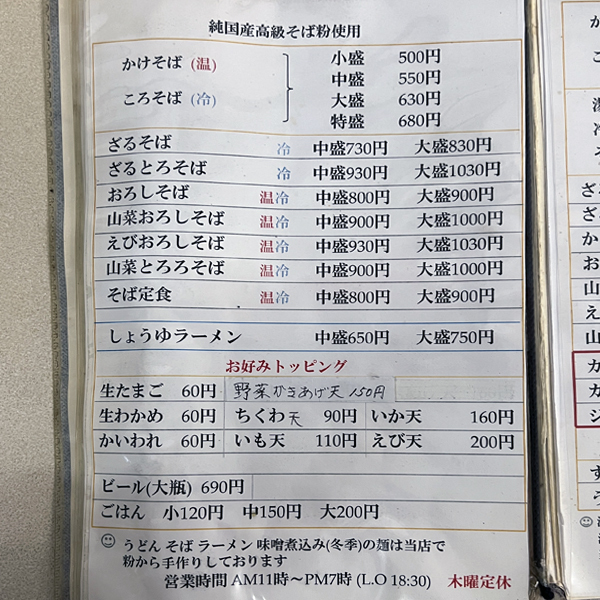 純国産高級そば粉使用
かけそば (温)
ころそば (冷)
小盛 500円
中盛 550円
大盛 630円
特盛 680円
ざるそば 冷 中盛730円 大盛830円
ざるとろそば 冷 中盛930円 大盛1030円
おろしそば 温冷 中盛800円 大盛900円
山菜おろしそば 温冷 中盛900円 大盛1000円
えびおろしそば 温冷 中盛930円 大盛1030円
山菜とろろそば 温冷 中盛900円 大盛1000円
そば定食 温冷 中盛800円 大盛900円
しょうゆラーメン 中盛650円 大盛750円
お好みトッピング
生たまご 60円 野菜かきあげ天 150円
生わかめ 60円 ちくわ天 90円 いか天 160円
かいわれ 60円 いも天 110円 えび天 200円
ビール(大瓶) 690円
ごはん 小120円 中150円 大200円
うどん そば ラーメン 味噌煮込み(冬季)の麺は当店で
粉から手作りしております
営業時間 AM11時～PM7時 (L.O 18:30) 木曜定休